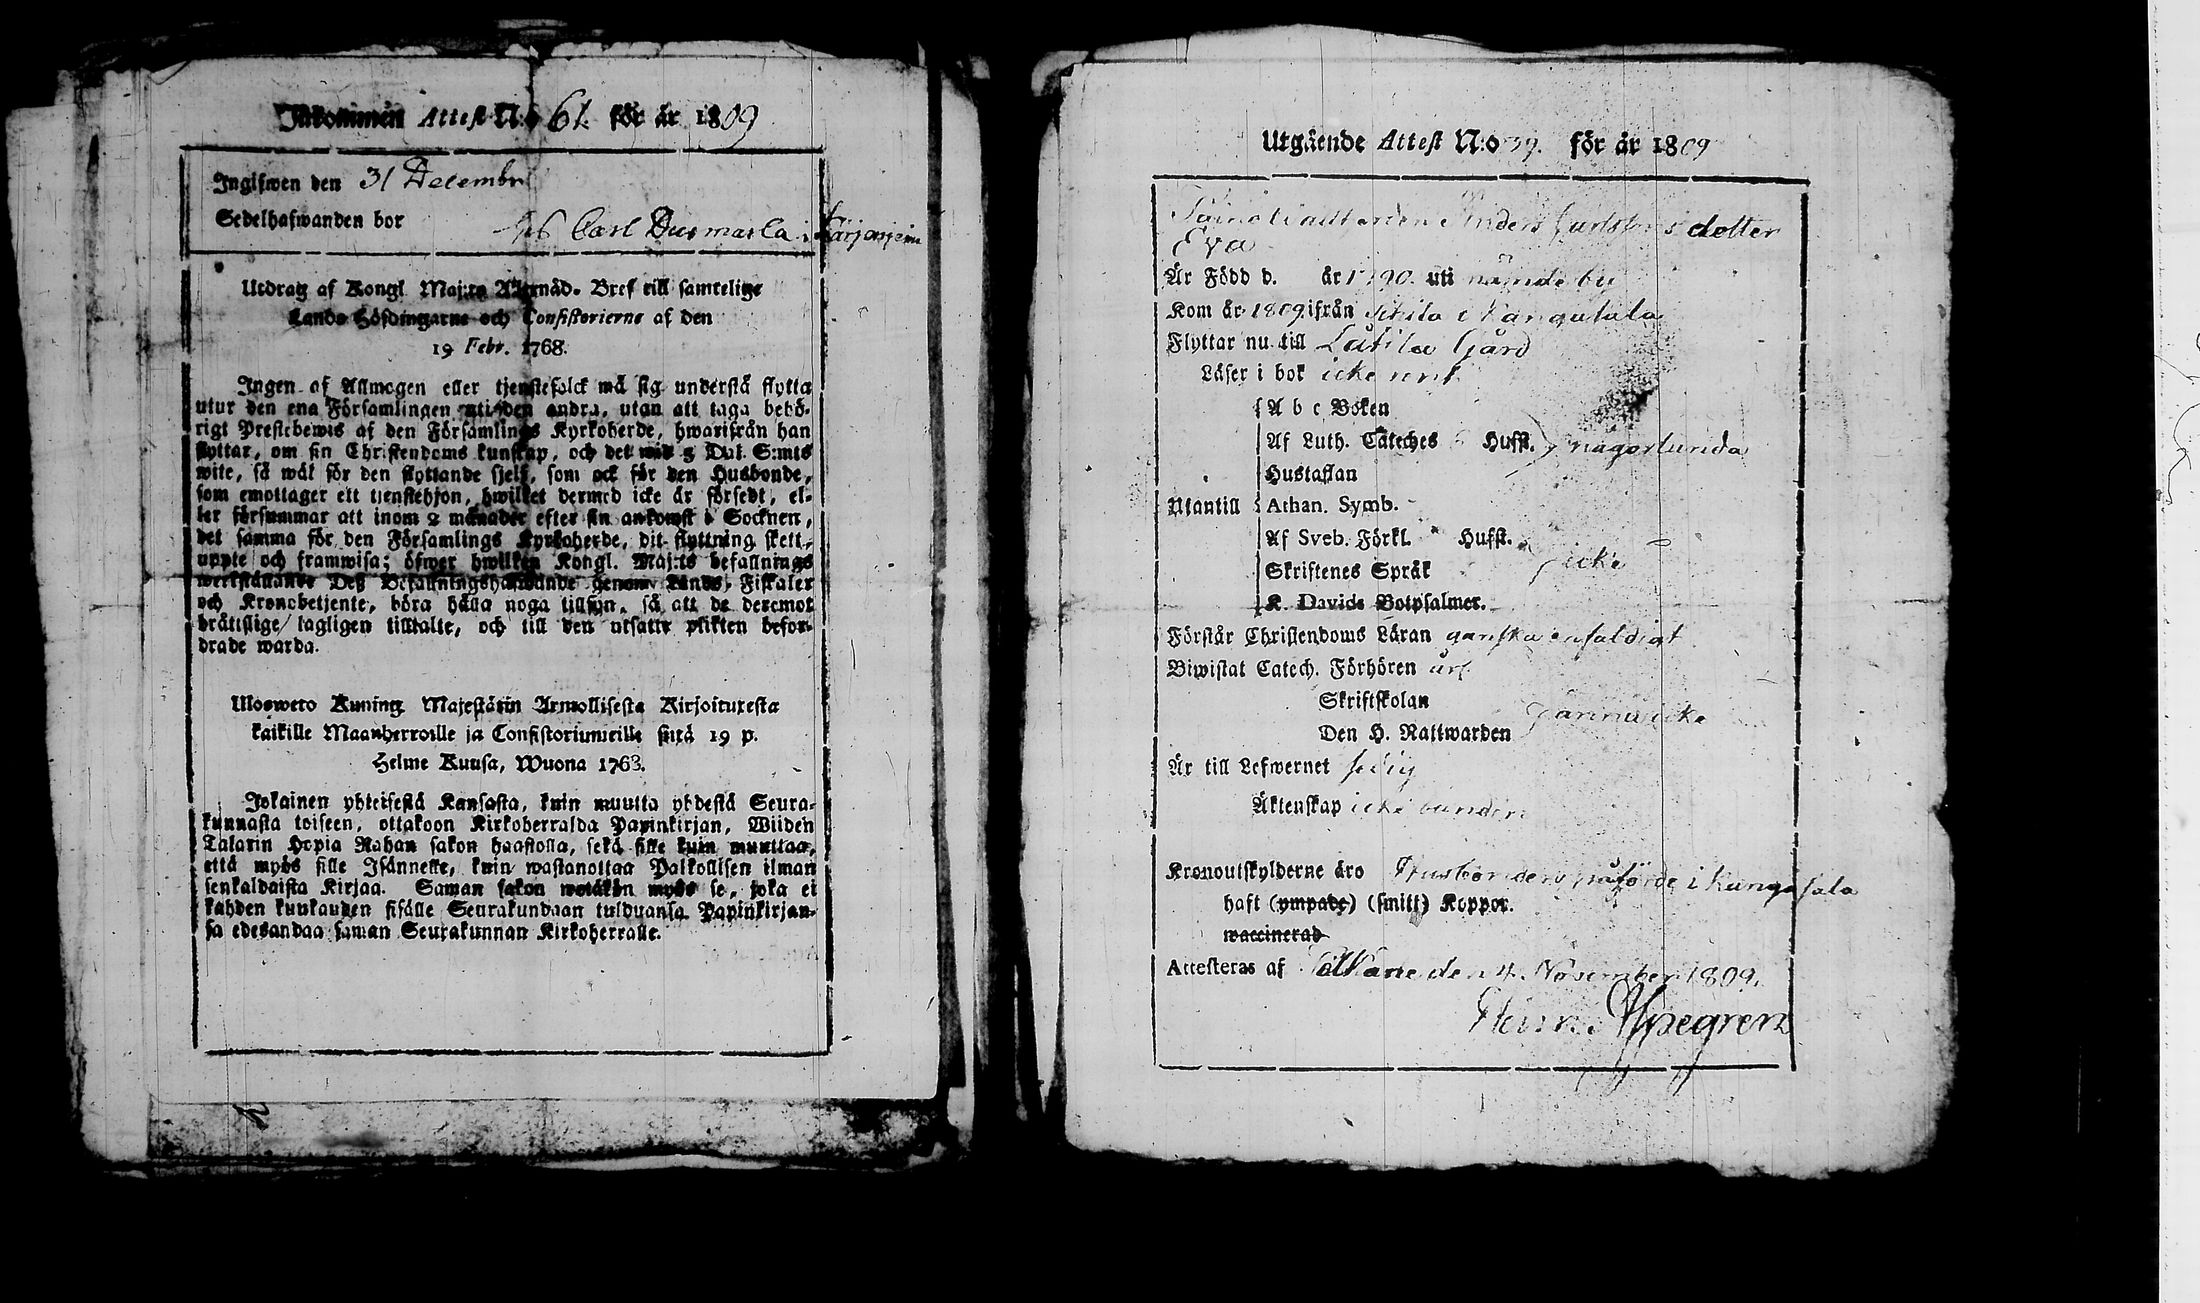 Inkommen Attest N:o 61. för år 1809
Ingifwen den 31 Decembr
Sedelhafwanden bor
hos Carl Dusmarla i
Utdrag af Kongl. Maj:ts Allernåd. Bref till samtelige
Lands Höfdingarne och Consistorierne af den
19 Febr. 1768.
Ingen af Allmogen eller tjenstefolck må sig understå flytta
utur den ena Församlingen uti den andra, utan att taga behö-
rigt Prestebewis af den Församlings Kyrkoherde, hwarifrån han
flyttar, om sin Christendoms kunskap, och det wid 5 Dal. S:mts
wite, så wäl för den flyttande sjelf, som ock för den Husbonde,
som emottager ett tjenstehjon, hwilket dermed icke är försedt, el-
ler försummar att inom 2 månader efter sin ankomst i Socknen,
det samma för den Församlings Kyrkoherde, dit flyttning skett,
uppte och framwisa; öfwer hwilken Kongl. Maj:ts befallnings
werkställande Deß Befallningshafwande genom Lands, Fiskaler
och Kronobetjente, böra hålla noga tillsyn, så att de deremot
brättslige/ lagligen tilltalte, och till den utsatte plikten befor-
drade warda.
Ulosweto Kuning. Majestätin Armollisesta Kirjoituxesta
kaikille Maanherroille ja Consistoriumeille siitä 19 p.
Helme Kuusa, Wuona 1763.
Jokainen yhteisestä Kansasta, kuin muutta yhdestä Seura-
kunnasta toiseen, ottakoon Kirkoherralda Papinkirjan, Wiiden
Talarin Hopia Rahan sakon haastolla, sekä sille kuin muuttaa,
että myös sille Isännelle, kuin wastanottaa Palkollisen ilman
senkaldaista Kirjaa. Saman sakon wetäkön myös se, joka ei
kahden kuukauden sisälle Seurakundaan tulduansa Papinkirjan-
sa edesandaa saman Seurakunnan Kirkoherralle.
Utgående Attest N:o 39. för år 1809
Anders Carlssons dotter
Eva
Är Född d. år 1790. uti nämde by
Kom år 1809 ifrån i Kangasala
Flyttar nu till Gård
Läser i bok icke rent
A b c Boken
Af Luth. Cateches Hufst. någorlunda
Hustaflan
Utantill Athan. Symb.
Af Sveb. Förkl. Hufst.
Skriftenes Språk icke
K. Davids Botpsalmer.
Förstår Christendoms Läran ganska enfaldigt
Biwistat Catech. Förhören
Skriftskolan
Den H. Nattwarden ännu icke
Är till Lefwernet sedig
Äktenskap icke bunden
Kronoutskylderne äro påförde i Kangasala
haft (ympade) (smitt) Koppor.
waccinerad
Attesteras af den 4 November 1809.